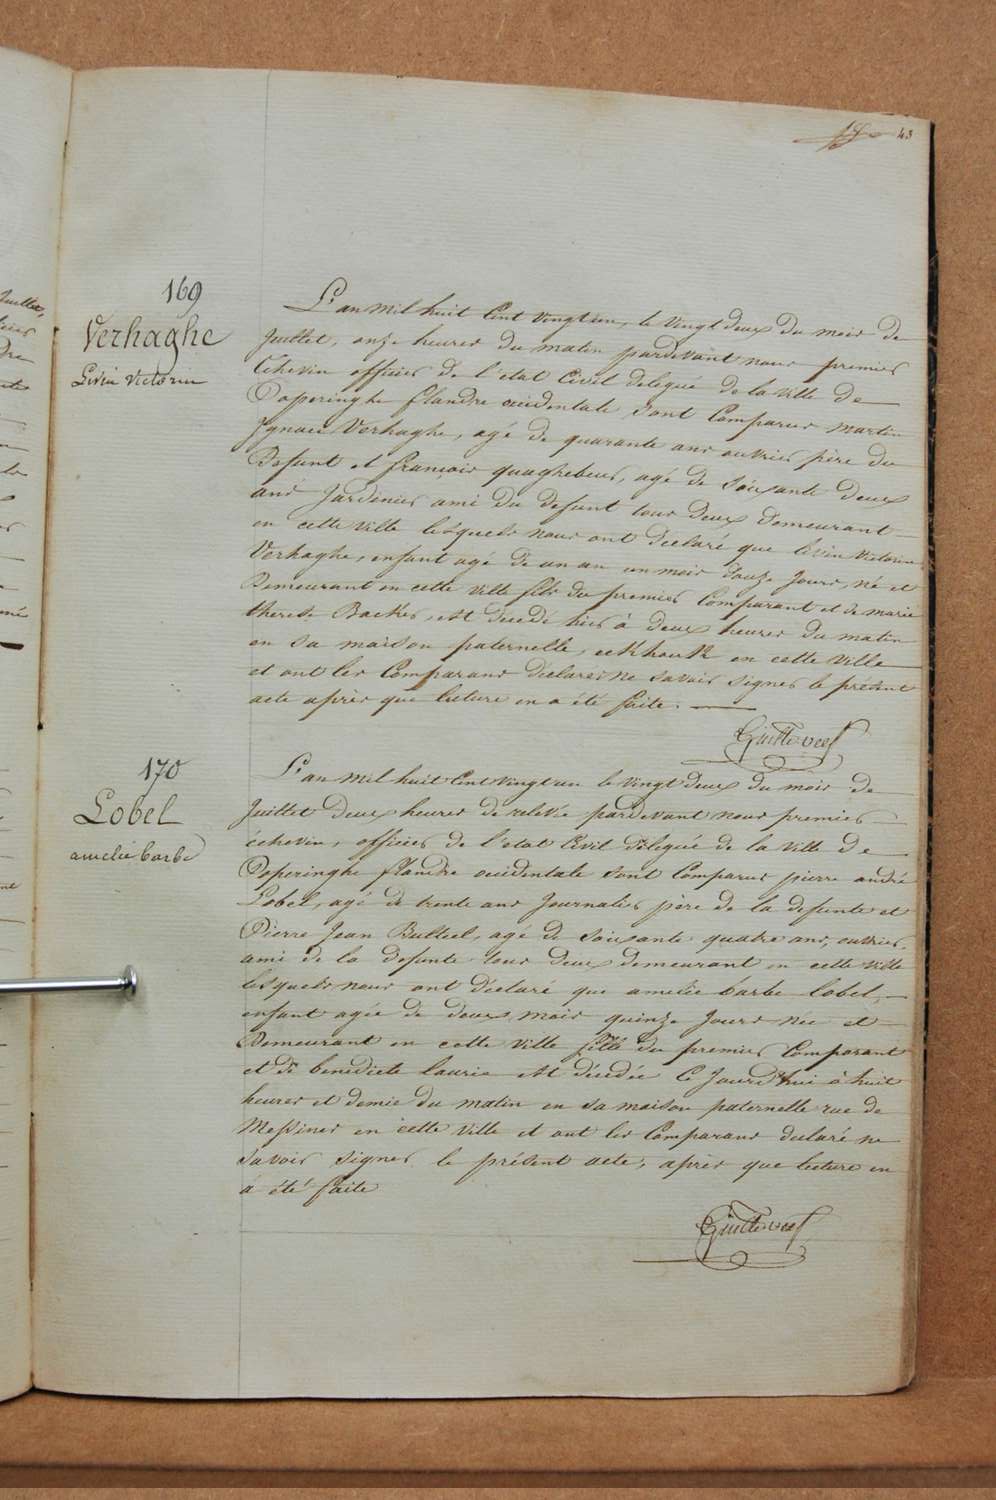 43
169
Verhaghe
Livin Victorin
L'an mil huit Cent vingt un, le vingt deux du mois de
Juillet, onze heures du matin pardevant nous premier
Echevin officier de l'etat Civil délegué de la ville de
Poperinghe flandre occidentale sont Comparus martin
Ignace Verhaghe, agé de quarante ans ouvrier père du
Defunt et françois quaghebeur, agé de soixante deux
ans Jardinier ami du defunt tous deux Demeurant
en cette ville lesquels nous ont declaré que livin victorin
Verhaghe, enfant agé de un an un mois douze Jours, né et
Demeurant en cette ville fils du premier Comparant et de marie
therese Backer, est décédé hier à deux heures du matin
en sa maison paternelle, eekhoek en cette ville
et ont les Comparans déclarés ne savoir signer le présent
acte après que lecture en a été faite.
170
Lobel
amelie barbe
L'an mil huit Cent vingt un le vingt deux du mois de
Juillet deux heures de relevée pardevant nous premier
échevin, officier de l'etat Civil délegué de la ville de
Poperinghe flandre occidentale sont Comparus pierre andré
Lobel, agé de trente ans Journalier père de la defunte et
Pierre Jean Butteel, agé de soixante quatre ans, ouvrier,
ami de la defunte tous deux demeurant en cette ville
lesquels nous ont déclaré que amelie barbe lobel,
enfant agée de deux mois quinze Jours née et
Demeurant en cette ville fille du premier Comparant
et de benedicte laurie est décédée ce Jourd'hui à huit
heures et demie du matin en sa maison paternelle rue de
Messines en cette ville et ont les Comparans declaré ne
savoir signer le présent acte, après que lecture en
a été faite